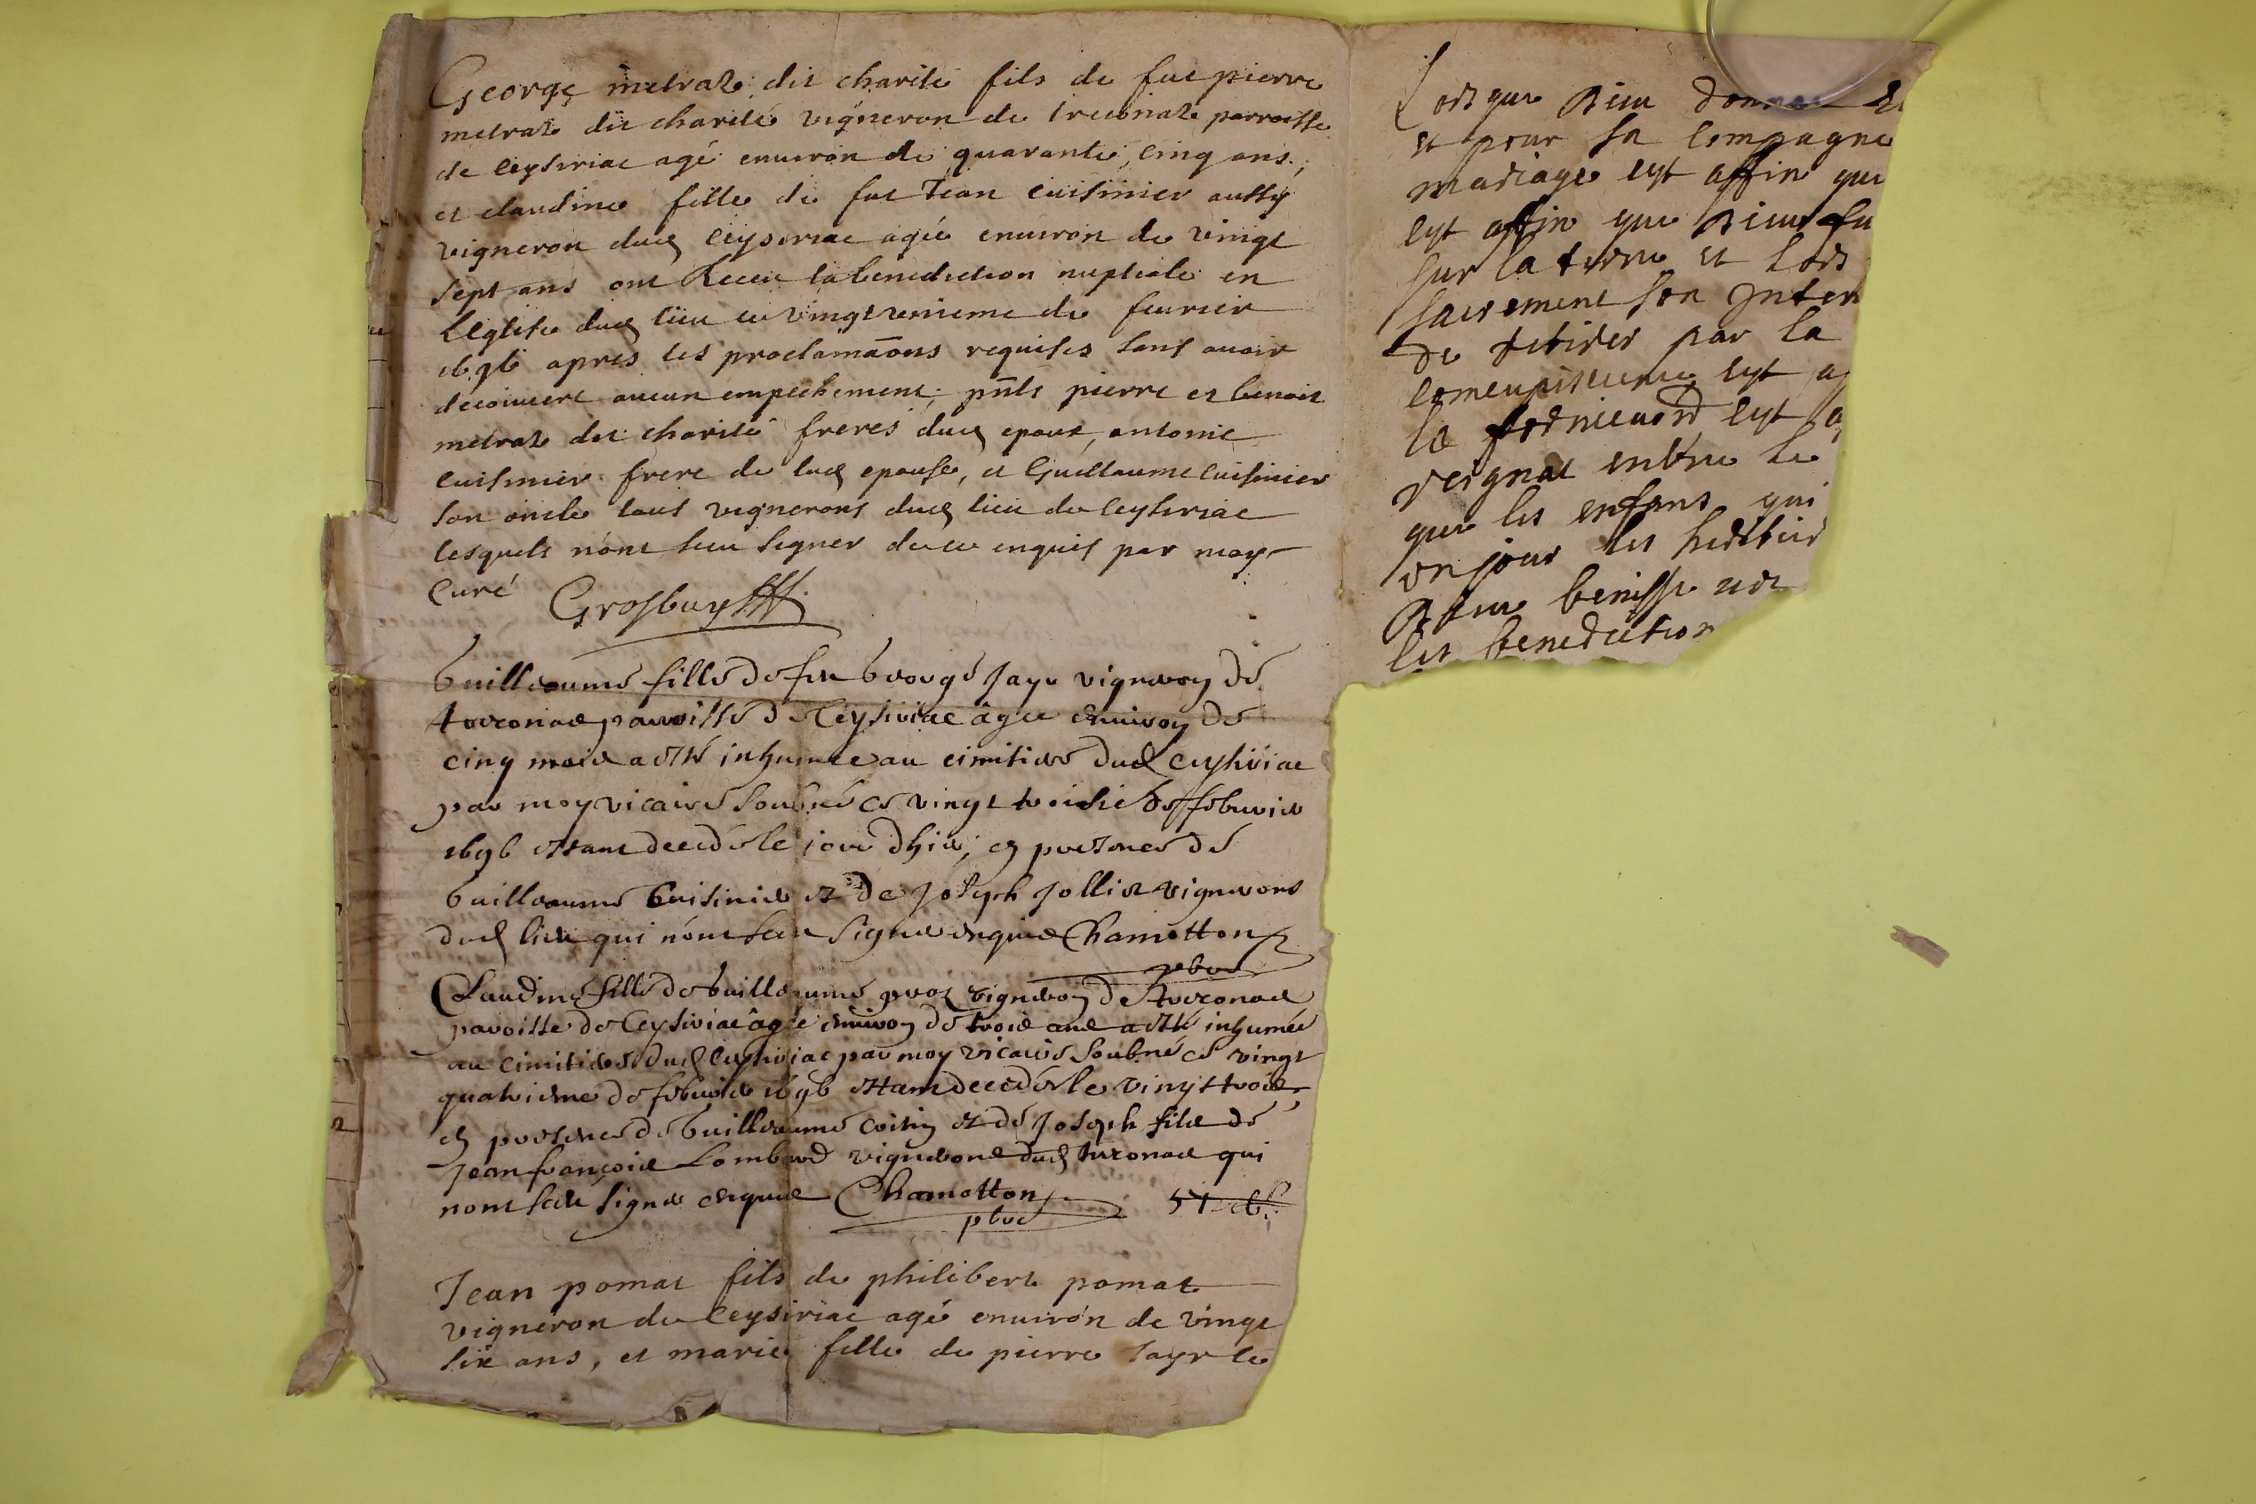 George metraz dit charite fils de fue pierre
metraz dit charité vigneron de treconaz parroisse
de Ceysiriac agé enuiron de quarante, cinq ans,
et claudine fille de fue Jean cuisinier aussy
vigneron dud Ceysiriac agée enuiron de vingt
sept ans ont Receu la benediction nuptiale en
l'Eglise dud lieu ce vingt unieme de feurier
1696 apres les proclamaons requises sans auoir
decouuert aucun empechement, pnts pierre et benoit
metraz dit charité freres dud epoux, antonie
cuisinier frere de lad epouse, et Guillaume cuisinier
son oncle tous vignerons dud lieu de Ceysiriac
lesquels n'ont sceu signer de ce enquis par moy
Curé Grosbuys
Guillaume fille de feu George Jayr vigneron de
treconas parroisse de Ceysiriac âgee enuiron de
cinq mois a esté inhumée au cimitiere dud Ceysiriac
par moy vicaire soubné ce vingt troisie de febvrier
1696 estant decedée le jour d'hier, en presence de
Guillaume Cuisinier et de Joseph Jollier vignerons
dud lieu qui n'ont sceu signer enquis Chamotton
pbre
Claudine fille de Guillaume vigneron de treconas
paroisse de Ceysiriac âgée enuiron de trois ans a esté inhumée
au cimitiere dud Ceysiriac par moy vicaire soubné ce vingt
quatrieme de febvrier 1696 estant decedée le vingt trois
en presence de Guillaume et de Joseph fils de
Jean françois Lombard vignerons dud treconas qui
n'ont sceu signer enquis Chamotton
pbre
Jean pomat fils de philibert pomat
vigneron de Ceysiriac agé enuiron de vingt
six ans, et marie fille de pierre Jayr le
Lorsque Dieu donna
et pour sa Compagne
mariage est affin que
est affin que Dieu fu
sur la terre et Lors
sacrement son Inten
de retirer par la
concupiscence est a
la est a
reignat entre le
que les enfans qui
un jour les heritier
Dieu benisse
les benediction